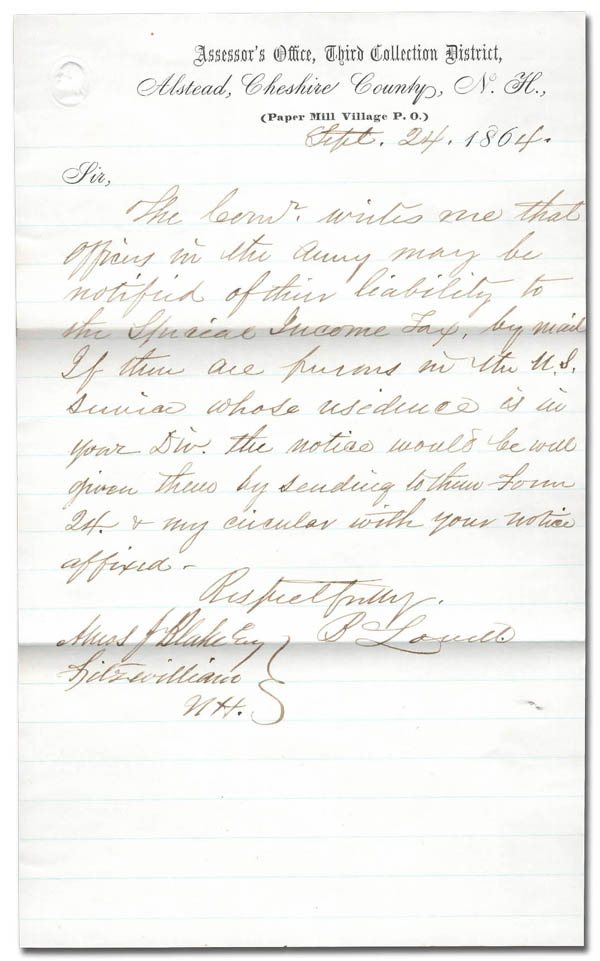 Assessor's Office, Third Collection District,
Alstead, Cheshire County, N. H.,
(Paper Mill Village P. O.)
Sept. 24. 1864.
Sir,
The Comr. writes me that
officers in the Army may be
notified of their liability to
the Special Income Tax, by mail
If there are persons in the U.S.
service whose residence is in
your Div. the notice would be well
given them by sending to them Form
24. & my circular with your notice
affixed -
Respectfully.
B Lovell.
Amos J Blake Esq
Fitzwilliam
NH.